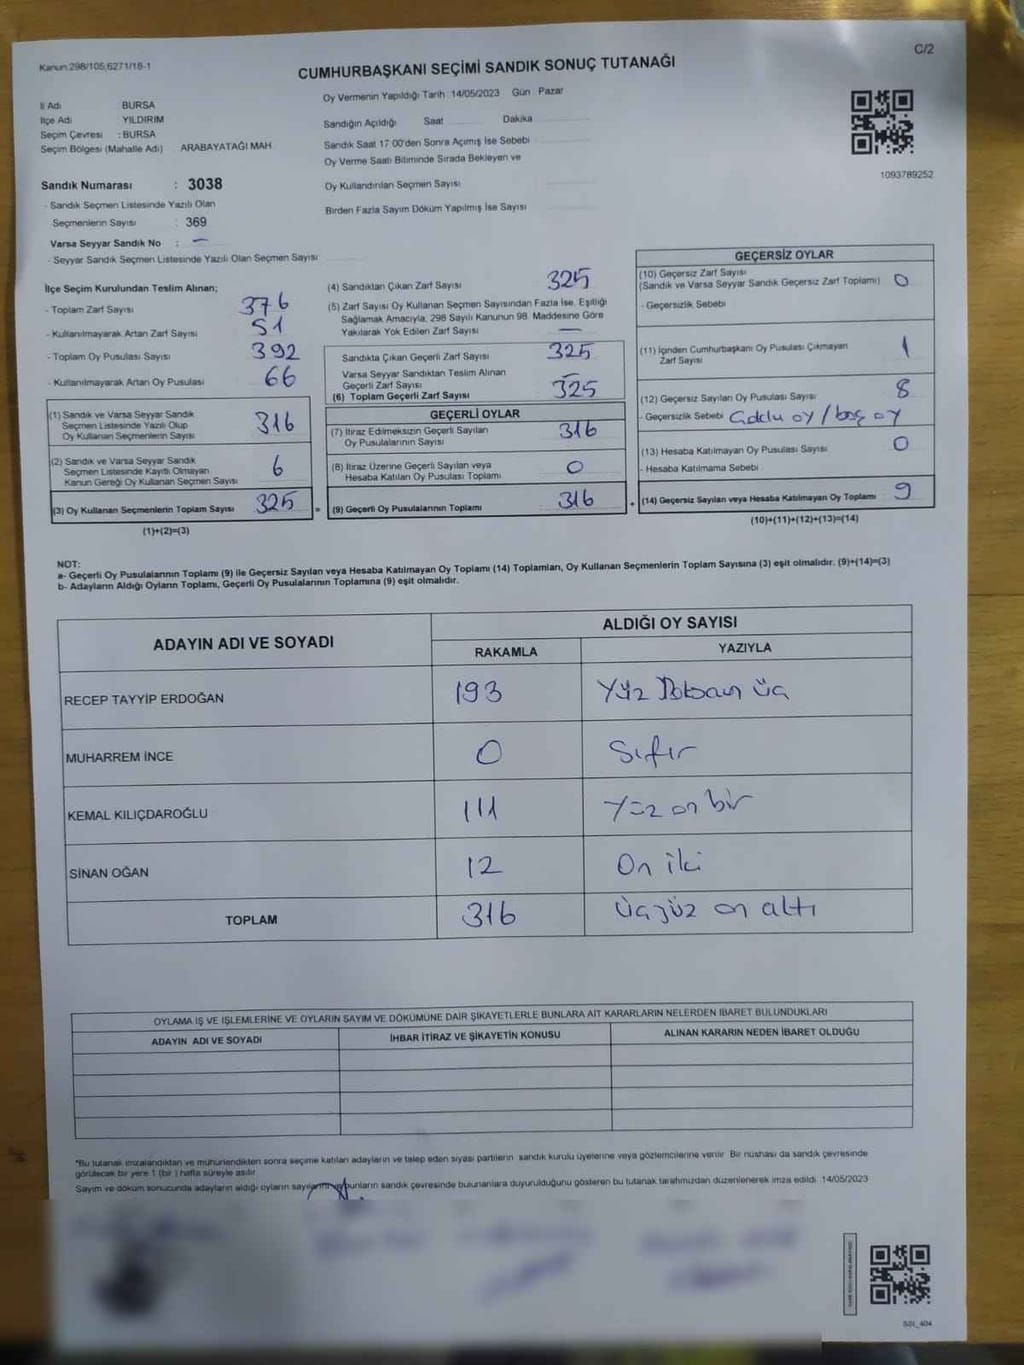 Kanun:298/105;6271/18-1
C/2
CUMHURBAŞKANI SEÇİMİ SANDIK SONUÇ TUTANAĞI
Oy Vermenin Yapıldığı Tarih 14/05/2023 Gün Pazar
İl Adı BURSA
İlçe Adı YILDIRIM
Seçim Çevresi : BURSA
Seçim Bölgesi (Mahalle Adı) ARABAYATAĞI MAH
Sandığın Açıldığı Saat Dakika
Sandık Saat 17:00'den Sonra Açımış İse Sebebi
Oy Verme Saati Bitiminde Sırada Bekleyen ve
Oy Kullandırılan Seçmen Sayısı
Birden Fazla Sayım Döküm Yapılmış İse Sayısı
1093789252
Sandık Numarası : 3038
- Sandık Seçmen Listesinde Yazılı Olan
Seçmenlerin Sayısı : 369
Varsa Seyyar Sandık No : —
- Seyyar Sandık Seçmen Listesinde Yazılı Olan Seçmen Sayısı:
İlçe Seçim Kurulundan Teslim Alınan;
- Toplam Zarf Sayısı 376
- Kullanılmayarak Artan Zarf Sayısı 51
- Toplam Oy Pusulası Sayısı 392
- Kullanılmayarak Artan Oy Pusulası 66
(1) Sandık ve Varsa Seyyar Sandık
Seçmen Listesinde Yazılı Olup
Oy Kullanan Seçmenlerin Sayısı 316
(2) Sandık ve Varsa Seyyar Sandık
Seçmen Listesinde Kayıtlı Olmayan
Kanun Gereği Oy Kullanan Seçmen Sayısı 6
(3) Oy Kullanan Seçmenlerin Toplam Sayısı 325
(1)+(2)=(3)
(4) Sandıktan Çıkan Zarf Sayısı 325
(5) Zarf Sayısı Oy Kullanan Seçmen Sayısından Fazla İse, Eşitliği
Sağlamak Amacıyla, 298 Sayılı Kanunun 98. Maddesine Göre
Yakılarak Yok Edilen Zarf Sayısı —
Sandıkta Çıkan Geçerli Zarf Sayısı 325
Varsa Seyyar Sandıktan Teslim Alınan
Geçerli Zarf Sayısı —
(6) Toplam Geçerli Zarf Sayısı 325
GEÇERLİ OYLAR
(7) İtiraz Edilmeksizin Geçerli Sayılan
Oy Pusulalarının Sayısı 316
(8) İtiraz Üzerine Geçerli Sayılan veya
Hesaba Katılan Oy Pusulası Toplamı 0
= (9) Geçerli Oy Pusulalarının Toplamı 316
GEÇERSİZ OYLAR
(10) Geçersiz Zarf Sayısı
(Sandık ve Varsa Seyyar Sandık Geçersiz Zarf Toplamı) 0
- Geçersizlik Sebebi
(11) İçinden Cumhurbaşkanı Oy Pusulası Çıkmayan
Zarf Sayısı 1
(12) Geçersiz Sayılan Oy Pusulası Sayısı 8
- Geçersizlik Sebebi oy / boş oy
(13) Hesaba Katılmayan Oy Pusulası Sayısı 0
- Hesaba Katılmama Sebebi
+ (14) Geçersiz Sayılan veya Hesaba Katılmayan Oy Toplamı 9
(10)+(11)+(12)+(13)=(14)
NOT:
a- Geçerli Oy Pusulalarının Toplamı (9) ile Geçersiz Sayılan veya Hesaba Katılmayan Oy Toplamı (14) Toplamları, Oy Kullanan Seçmenlerin Toplam Sayısına (3) eşit olmalıdır. (9)+(14)=(3)
b- Adayların Aldığı Oyların Toplamı, Geçerli Oy Pusulalarının Toplamına (9) eşit olmalıdır.
ADAYIN ADI VE SOYADI ALDIĞI OY SAYISI
RAKAMLA YAZIYLA
RECEP TAYYİP ERDOĞAN 193 Yüz Doksan üç
MUHARREM İNCE 0 Sıfır
KEMAL KILIÇDAROĞLU 111 Yüz on bir
SİNAN OĞAN 12 On iki
TOPLAM 316 üçyüz on altı
OYLAMA İŞ VE İŞLEMLERİNE VE OYLARIN SAYIM VE DÖKÜMÜNE DAİR ŞİKAYETLERLE BUNLARA AİT KARARLARIN NELERDEN İBARET BULUNDUKLARI
ADAYIN ADI VE SOYADI İHBAR İTİRAZ VE ŞİKAYETİN KONUSU ALINAN KARARIN NEDEN İBARET OLDUĞU
*Bu tutanak imzalandıktan ve mühürlendikten sonra seçime katılan adayların ve talep eden siyasi partilerin sandık kurulu üyelerine veya gözlemcilerine verilir. Bir nüshası da sandık çevresinde
görülecek bir yere 1 (bir ) hafta süreyle asılır.
Sayım ve döküm sonucunda adayların aldığı oyların sandık çevresinde bulunanlara duyurulduğunu gösteren bu tutanak tarafımızdan düzenlenerek imza edildi. 14/05/2023
SSI_404